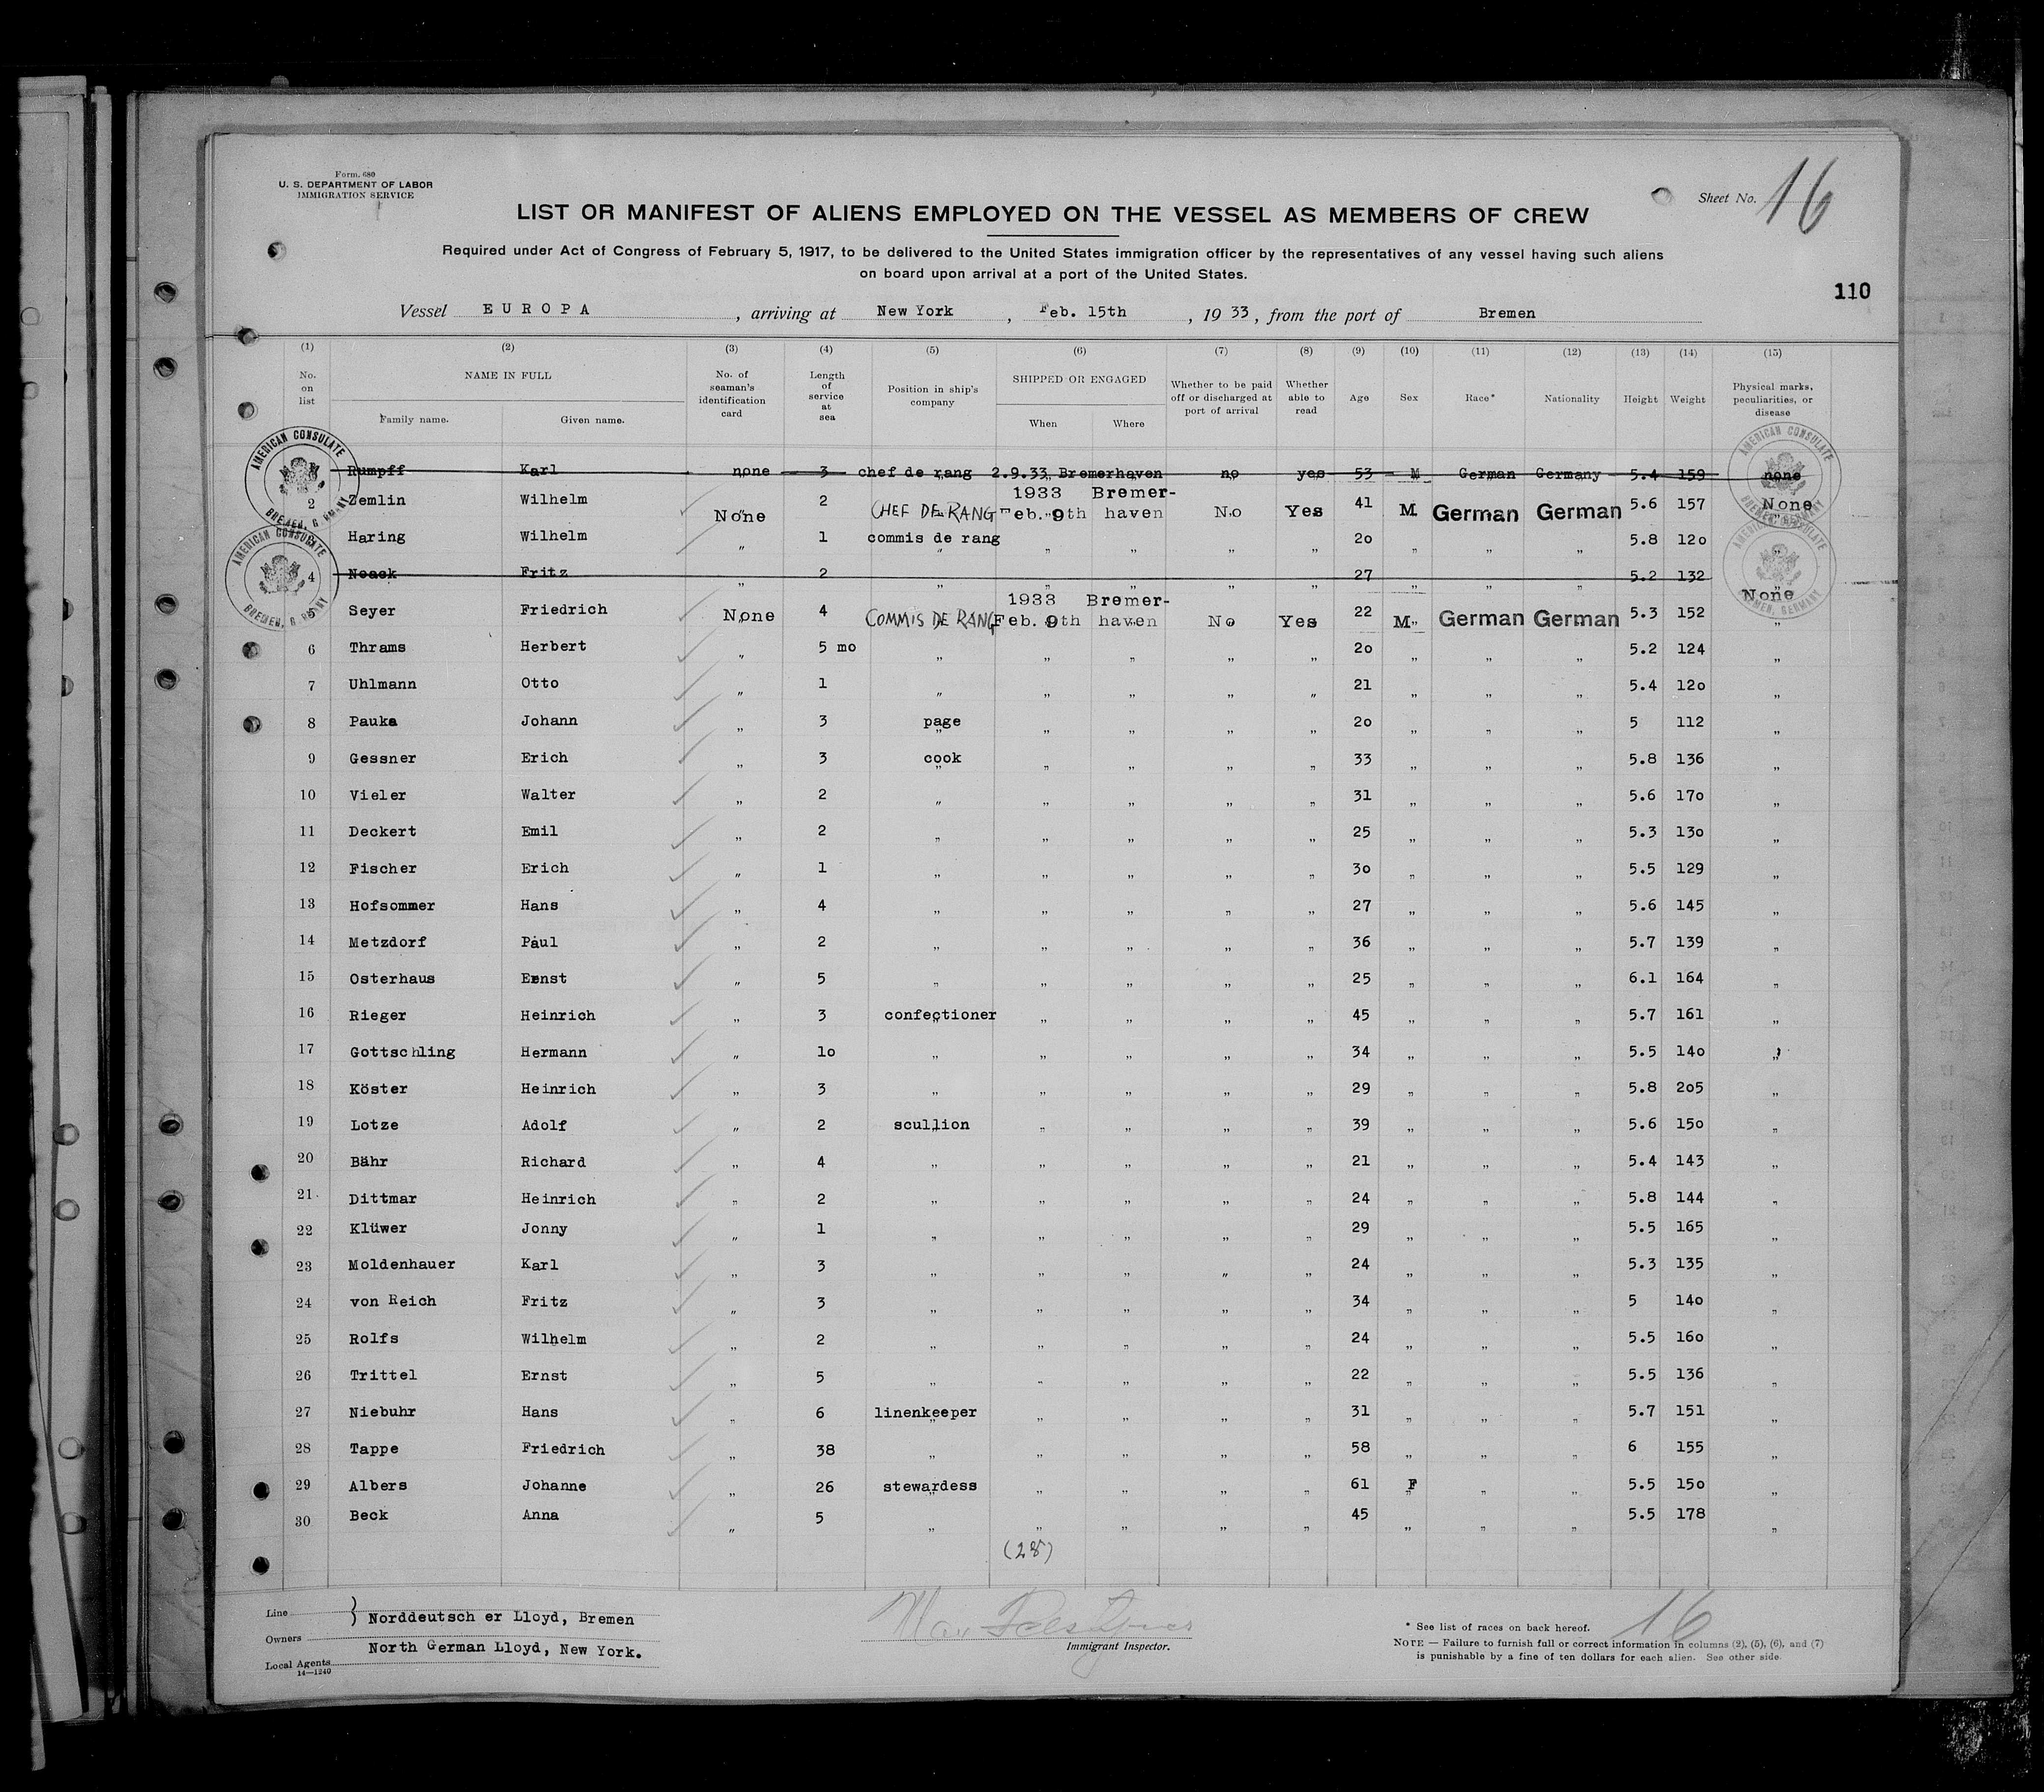 Form. 680
U. S. DEPARTMENT OF LABOR
IMMIGRATION SERVICE
Sheet No. 16
LIST OR MANIFEST OF ALIENS EMPLOYED ON THE VESSEL AS MEMBERS OF CREW
Required under Act of Congress of February 5, 1917, to be delivered to the United States immigration officer by the representatives of any vessel having such aliens
on board upon arrival at a port of the United States.
110
Vessel EUROPA, arriving at New York, Feb. 15th, 1933, from the port of Bremen
(1) (2) (3) (4) (5) (6) (7) (8) (9) (10) (11) (12) (13) (14) (15)
No. on list NAME IN FULL Family name. Given name. No. of seaman's identification card Length of service at sea Position in ship's company SHIPPED OR ENGAGED When Where Whether to be paid off or discharged at port of arrival Whether able to read Age Sex Race* Nationality Height Weight Physical marks, peculiarities, or disease
AMERICAN CONSULATE BREMEN, GERMANY
AMERICAN CONSULATE BREMEN, GERMANY
Rumpff Karl none 3 chef de rang 2.9.33 Bremerhaven no yes 53 M German Germany 5.4 159 none
2 Zemlin Wilhelm None 2 CHEF DE RANG 1933 Feb. 9th Bremer-haven No Yes 41 M German German 5.6 157 None
Haring Wilhelm „ 1 commis de rang „ „ „ „ 20 „ „ „ 5.8 120 „
4 Noack Fritz „ 2 „ „ „ „ „ 27 „ „ „ 5.2 132 „
5 Seyer Friedrich None 4 COMMIS DE RANG 1933 Feb. 9th Bremer-haven No Yes 22 M German German 5.3 152 None
6 Thrams Herbert „ 5 mo „ „ „ „ „ 20 „ „ „ 5.2 124 „
7 Uhlmann Otto „ 1 „ „ „ „ „ 21 „ „ „ 5.4 120 „
8 Pauka Johann „ 3 page „ „ „ „ 20 „ „ „ 5 112 „
9 Gessner Erich „ 3 cook „ „ „ „ 33 „ „ „ 5.8 136 „
10 Vieler Walter „ 2 „ „ „ „ „ 31 „ „ „ 5.6 170 „
11 Deckert Emil „ 2 „ „ „ „ „ 25 „ „ „ 5.3 130 „
12 Fischer Erich „ 1 „ „ „ „ „ 30 „ „ „ 5.5 129 „
13 Hofsommer Hans „ 4 „ „ „ „ „ 27 „ „ „ 5.6 145 „
14 Metzdorf Paul „ 2 „ „ „ „ „ 36 „ „ „ 5.7 139 „
15 Osterhaus Ernst „ 5 „ „ „ „ „ 25 „ „ „ 6.1 164 „
16 Rieger Heinrich „ 3 confectioner „ „ „ „ 45 „ „ „ 5.7 161 „
17 Gottschling Hermann „ 10 „ „ „ „ „ 34 „ „ „ 5.5 140 „
18 Köster Heinrich „ 3 „ „ „ „ „ 29 „ „ „ 5.8 205 „
19 Lotze Adolf „ 2 scullion „ „ „ „ 39 „ „ „ 5.6 150 „
20 Bähr Richard „ 4 „ „ „ „ „ 21 „ „ „ 5.4 143 „
21 Dittmar Heinrich „ 2 „ „ „ „ „ 24 „ „ „ 5.8 144 „
22 Klüwer Jonny „ 1 „ „ „ „ „ 29 „ „ „ 5.5 165 „
23 Moldenhauer Karl „ 3 „ „ „ „ „ 24 „ „ „ 5.3 135 „
24 von Reich Fritz „ 3 „ „ „ „ „ 34 „ „ „ 5 140 „
25 Rolfs Wilhelm „ 2 „ „ „ „ „ 24 „ „ „ 5.5 160 „
26 Trittel Ernst „ 5 „ „ „ „ „ 22 „ „ „ 5.5 136 „
27 Niebuhr Hans „ 6 linenkeeper „ „ „ „ 31 „ „ „ 5.7 151 „
28 Tappe Friedrich „ 38 „ „ „ „ „ 58 „ „ „ 6 155 „
29 Albers Johanne „ 26 stewardess „ „ „ „ 61 F „ „ 5.5 150 „
30 Beck Anna „ 5 „ „ „ „ „ 45 „ „ „ 5.5 178 „
(28)
Line
Owners
Local Agents
Norddeutscher Lloyd, Bremen
North German Lloyd, New York.
14—1240
Immigrant Inspector.
16
* See list of races on back hereof.
NOTE — Failure to furnish full or correct information in columns (2), (5), (6), and (7)
is punishable by a fine of ten dollars for each alien. See other side.